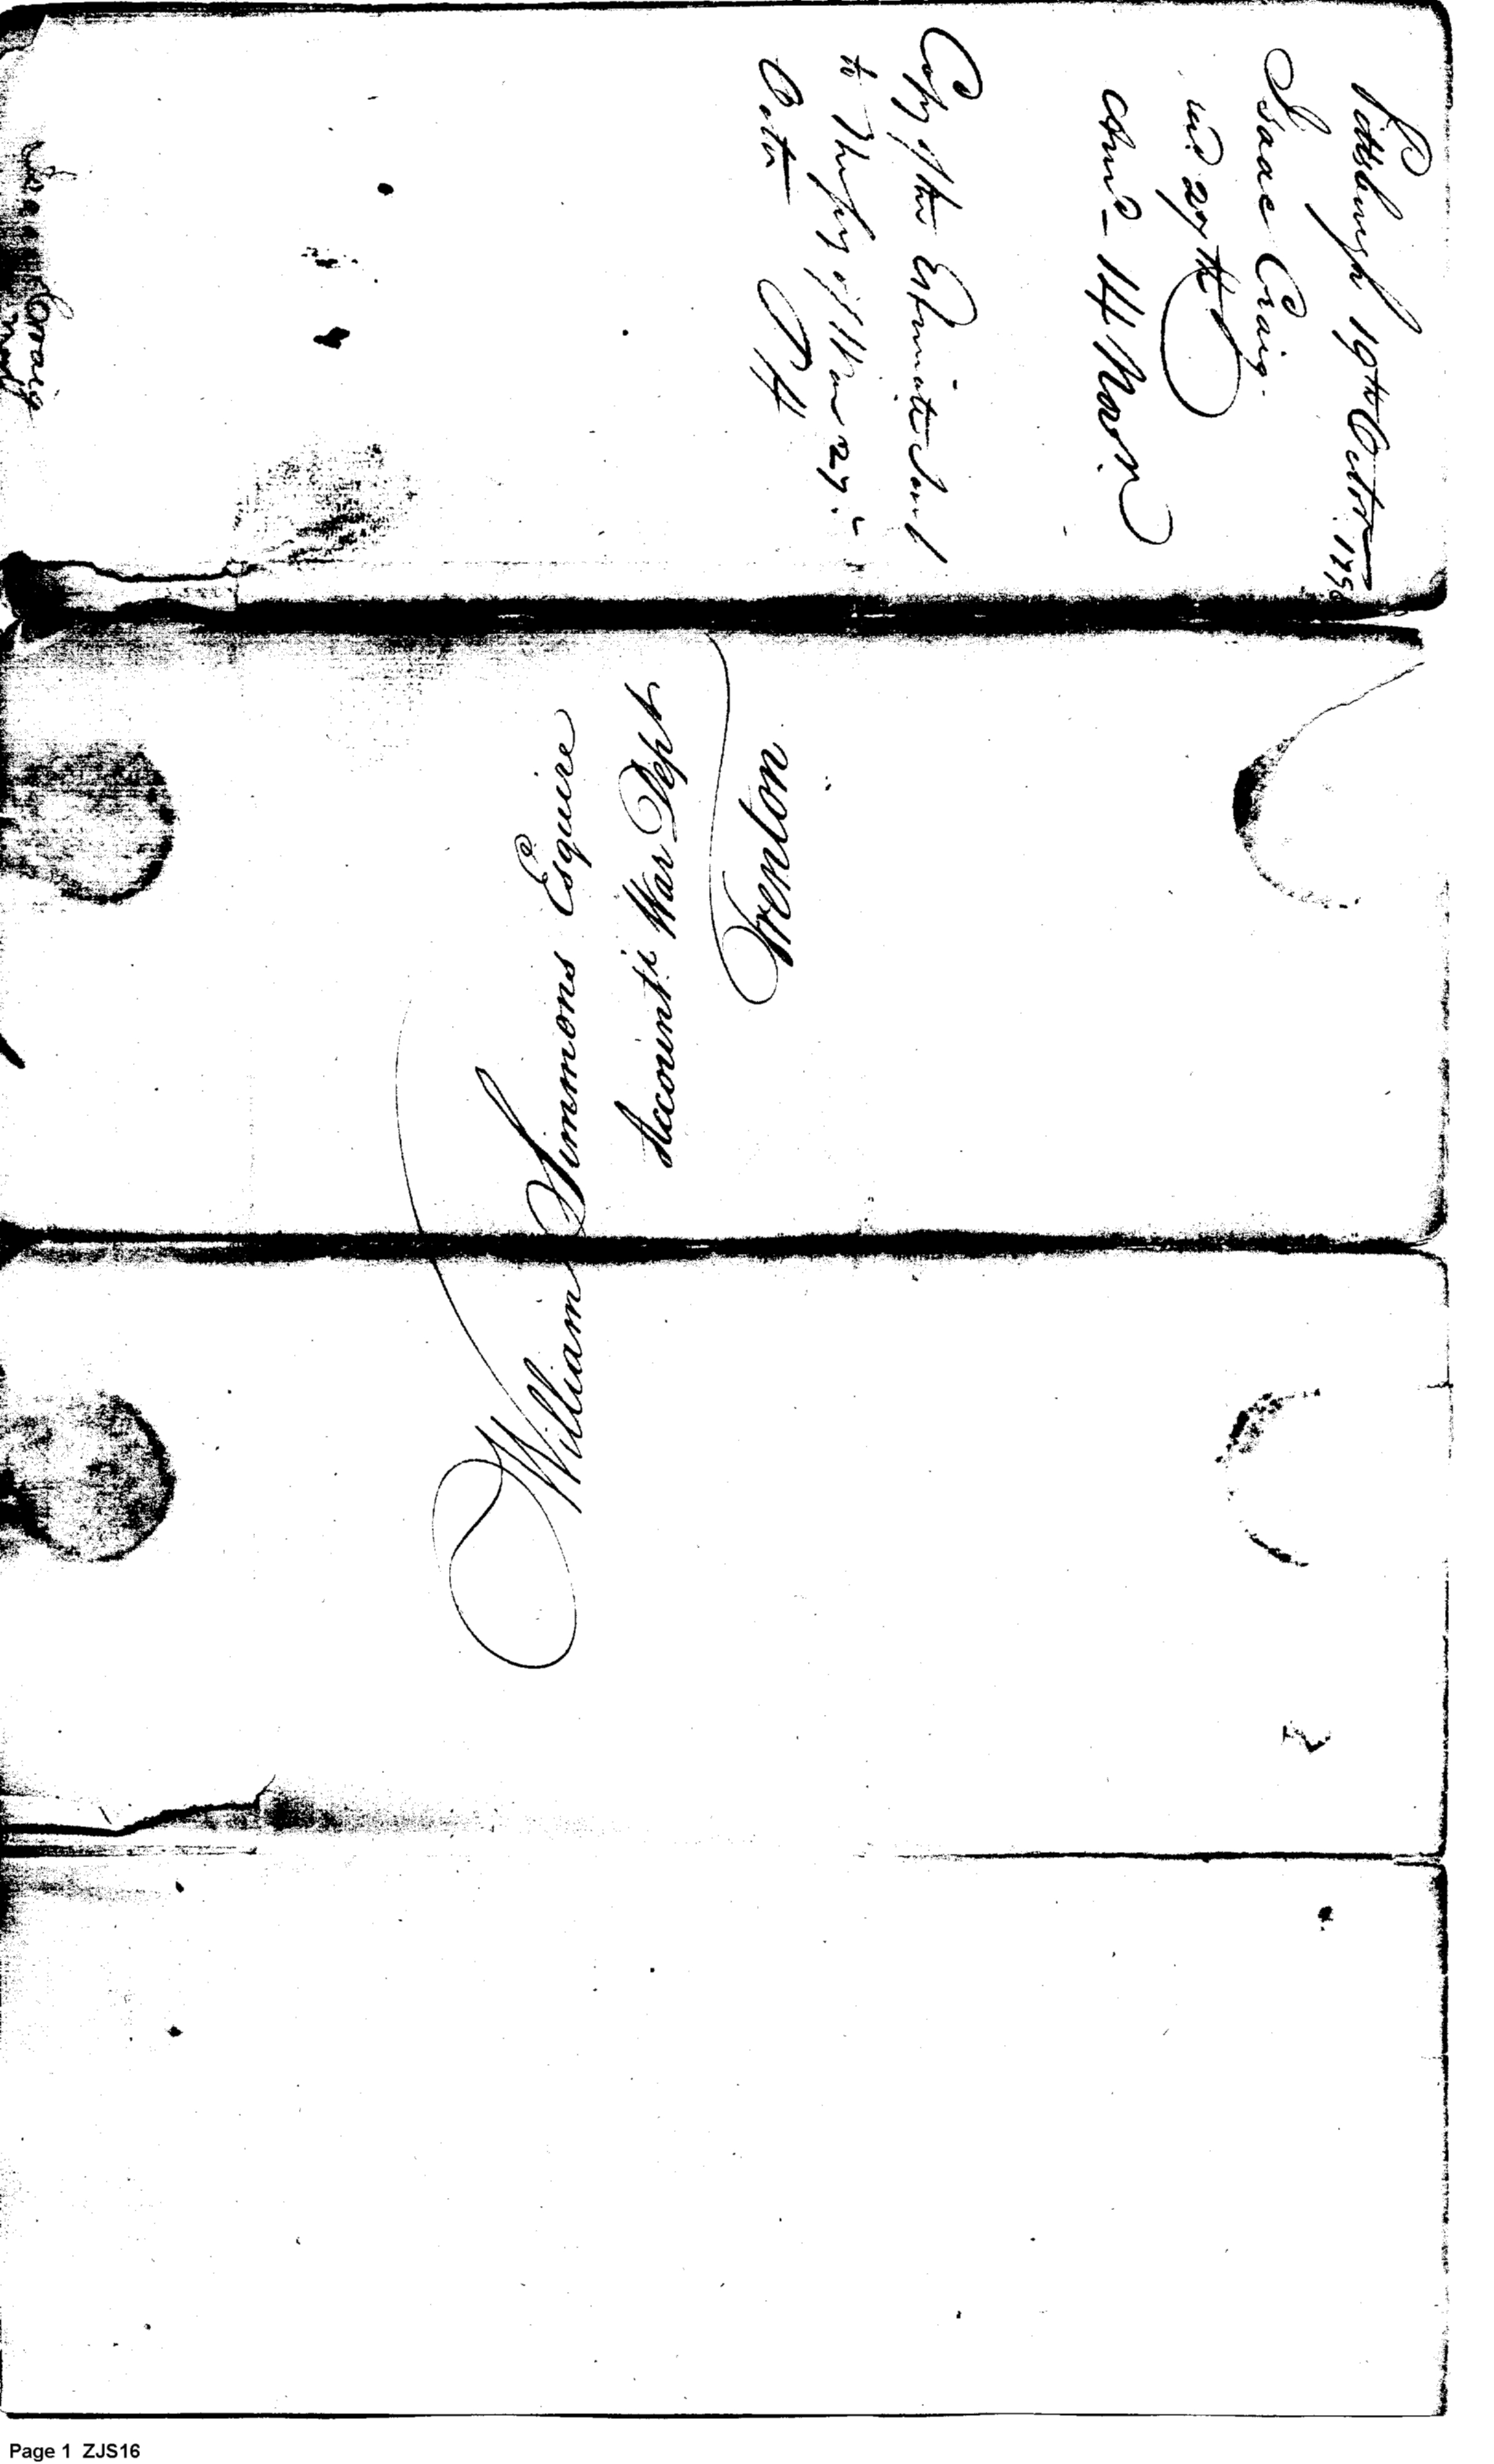 Pittsburgh 19th Octobr 1798
Isaac Craig.
recd 29th
Answd - 14 Novr
Copy of the Estimate sent
to the Secy of War 29.
Octr
William Simmons Esquire
Accountt War Dept
Trenton
Craig
Page 1 ZJS16